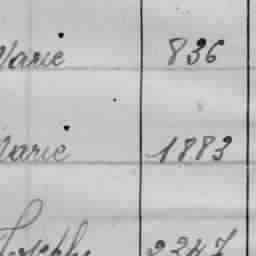 Marie 836
Marie 1883
Joseph 2247